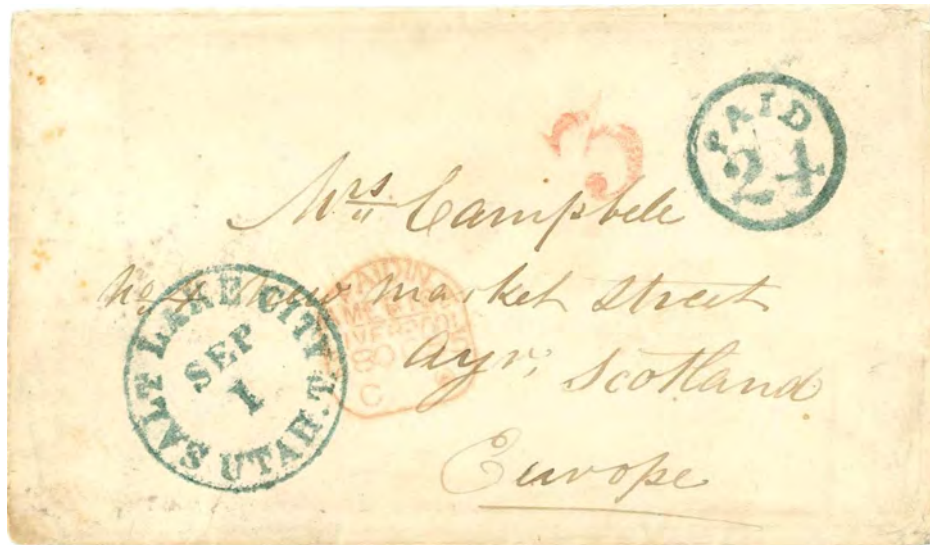 PAID
24
5
Mrs. Campbell
No. 4 New Market Street
Ayr, Scotland
Europe
SALT LAKE CITY
SEP
1
UTAH.T.
PAID IN
LIVERPOOL